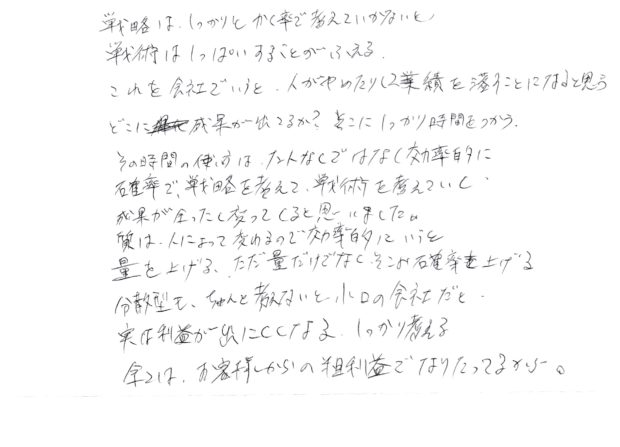 戦略は、しっかりとかく率で考えていかないと
戦術はしっぱいすることがふえる。
これを会社でいうと、人がやめたりして業績を落すことになると思う
どこに成果が出てるか？そこにしっかり時間をつかう。
その時間の使い方は、たんなくではなく効率的に
確率で、戦略を考えて、戦術を考えていく
成果が全ったく変ってくると思いました。
質は、人によって変わるので効率的にいうと
量を上げる、ただ量だけでなくそこの確率を上げる
分散型も、ちゃんと考えないと小口の会社だと、
実は利益が出にくくなる、しっかり考える
全ては、お客様からの粗利益でなりたってるから。